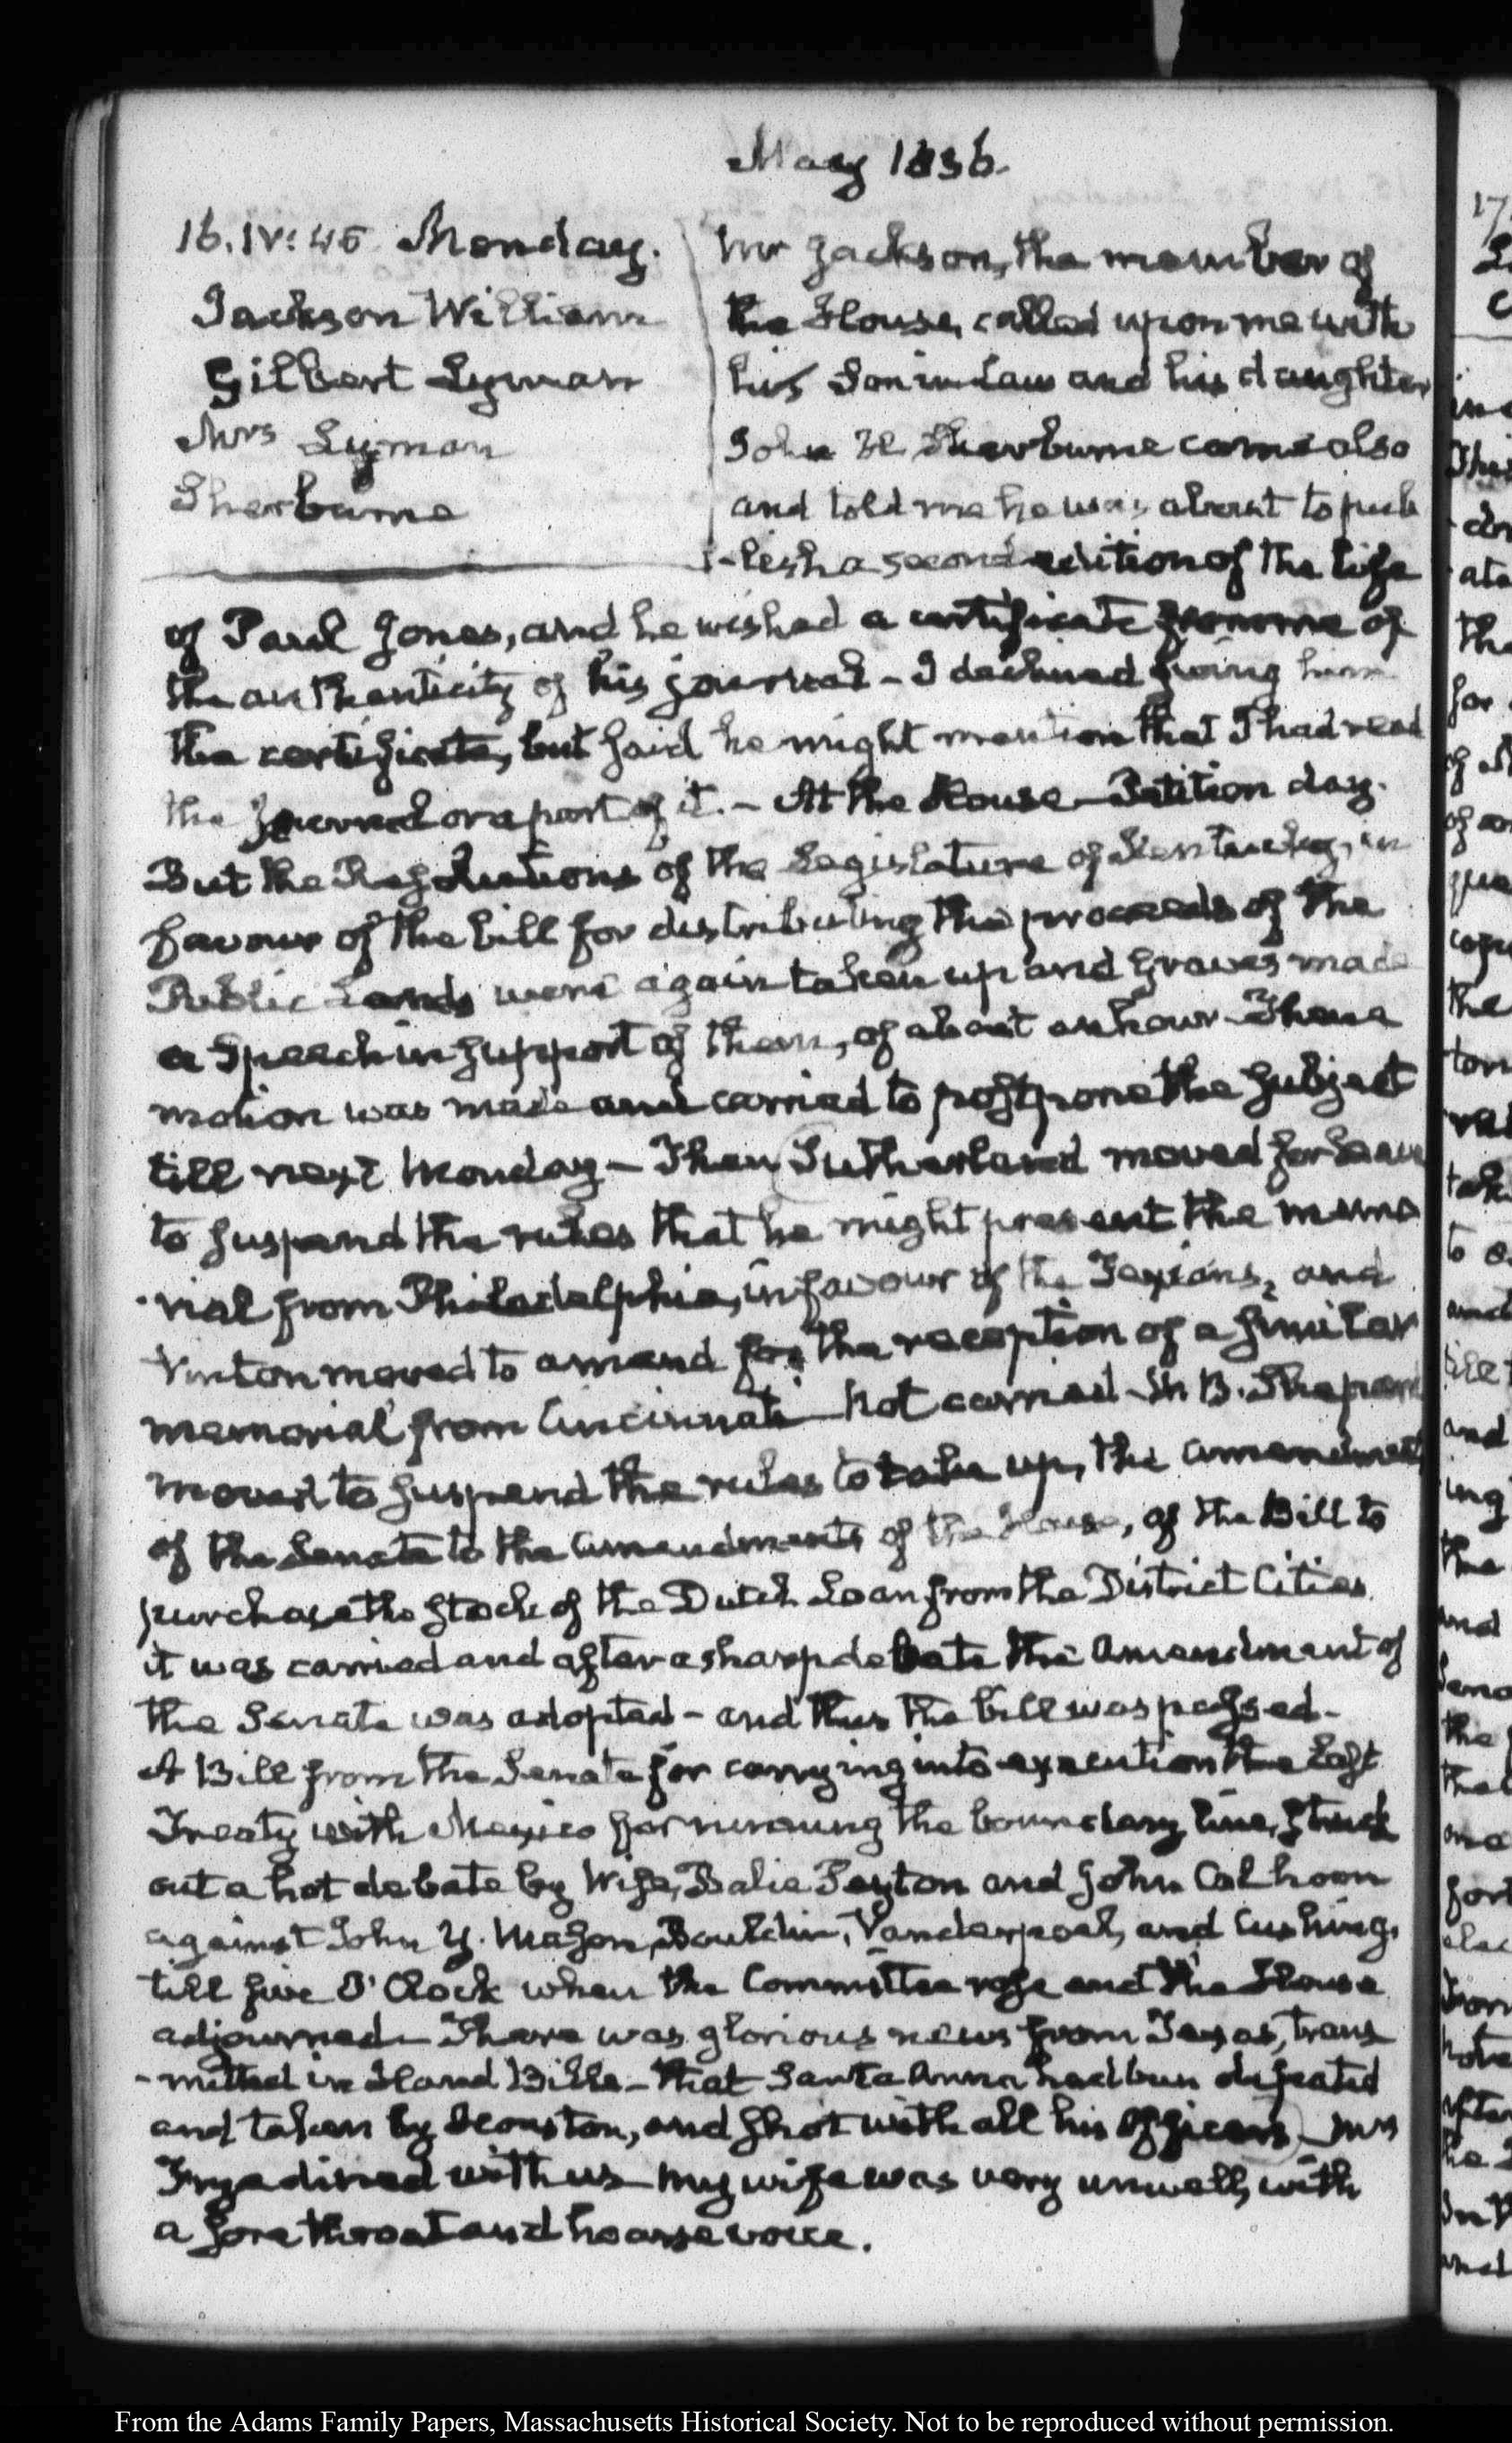 May 1836.
16. IV: 45 Monday.
Jackson William
Gilbert Lyman
Mrs Lyman
Sherburne
Mr Jackson, the member of
the House, called upon me with
his Son in Law and his daughter
John H Sherburne came also
and told me he was about to pub
-lish a second edition of the life
of Paul Jones, and he wished a certificate from me of
the authenticity of his journal – I declined giving him
the certificate, but said he might mention that I had read
the Journal or a part of it. – At the House – Petition day.
But the Resolutions of the Legislature of Kentucky, in
favour of the bill for distributing the proceeds of the
Public Lands were again taken up and Graves made
a Speech in support of them, of about an hour – Then a
motion was made and carried to postpone the subject
till next Monday – Then Sutherland moved for leave
to suspend the rules that he might present the memo
-rial from Philadelphia, in favour of the Texians, and
Vinton moved to amend for the reception of a similar
memorial from Cincinnati – Not carried – W. B. Shepard
moved to suspend the rules to take up, the amendment
of the Senate to the amendments of the House, of the Bill to
purchase the stock of the Dutch Loan from the District Cities
it was carried and after a sharp debate the Amendment of
the Senate was adopted – and thus the bill was passed –
A Bill from the Senate for carrying into execution the last
Treaty with Mexico for running the boundary line, struck
out a hot debate by Wise, Balie Peyton and John Calhoon
against John Y. Mason, Bouldin, Vanderpoel, and Cushing,
till five O'Clock when the Committee rose and the House
adjourned – There was glorious news from Texas, trans
-mitted in Hand Bills – that Santa Anna had been defeated
and taken by Houston, and shot with all his Officers – Mrs
Frye dined with us – My wife was very unwell, with
a sore throat and hoarse voice.
From the Adams Family Papers, Massachusetts Historical Society. Not to be reproduced without permission.